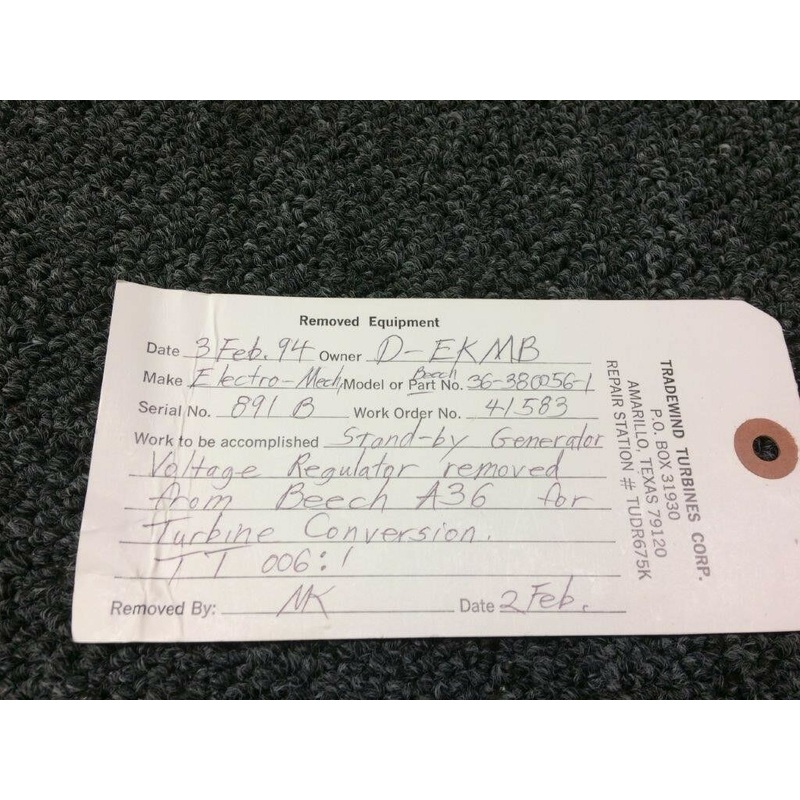 Removed Equipment
Date 3 Feb. 94 Owner D-EKMB
Beech
Make Electro-Mech, Model or Part No. 36-380056-1
Serial No. 891 B Work Order No. 41583
Work to be accomplished Stand-by Generator
Voltage Regulator removed
from Beech A36 for
Turbine Conversion.
TT 006:1
Removed By: MK Date 2 Feb.
TRADEWIND TURBINES CORP.
P.O. BOX 31930
AMARILLO, TEXAS 79120
REPAIR STATION # TUDR675K